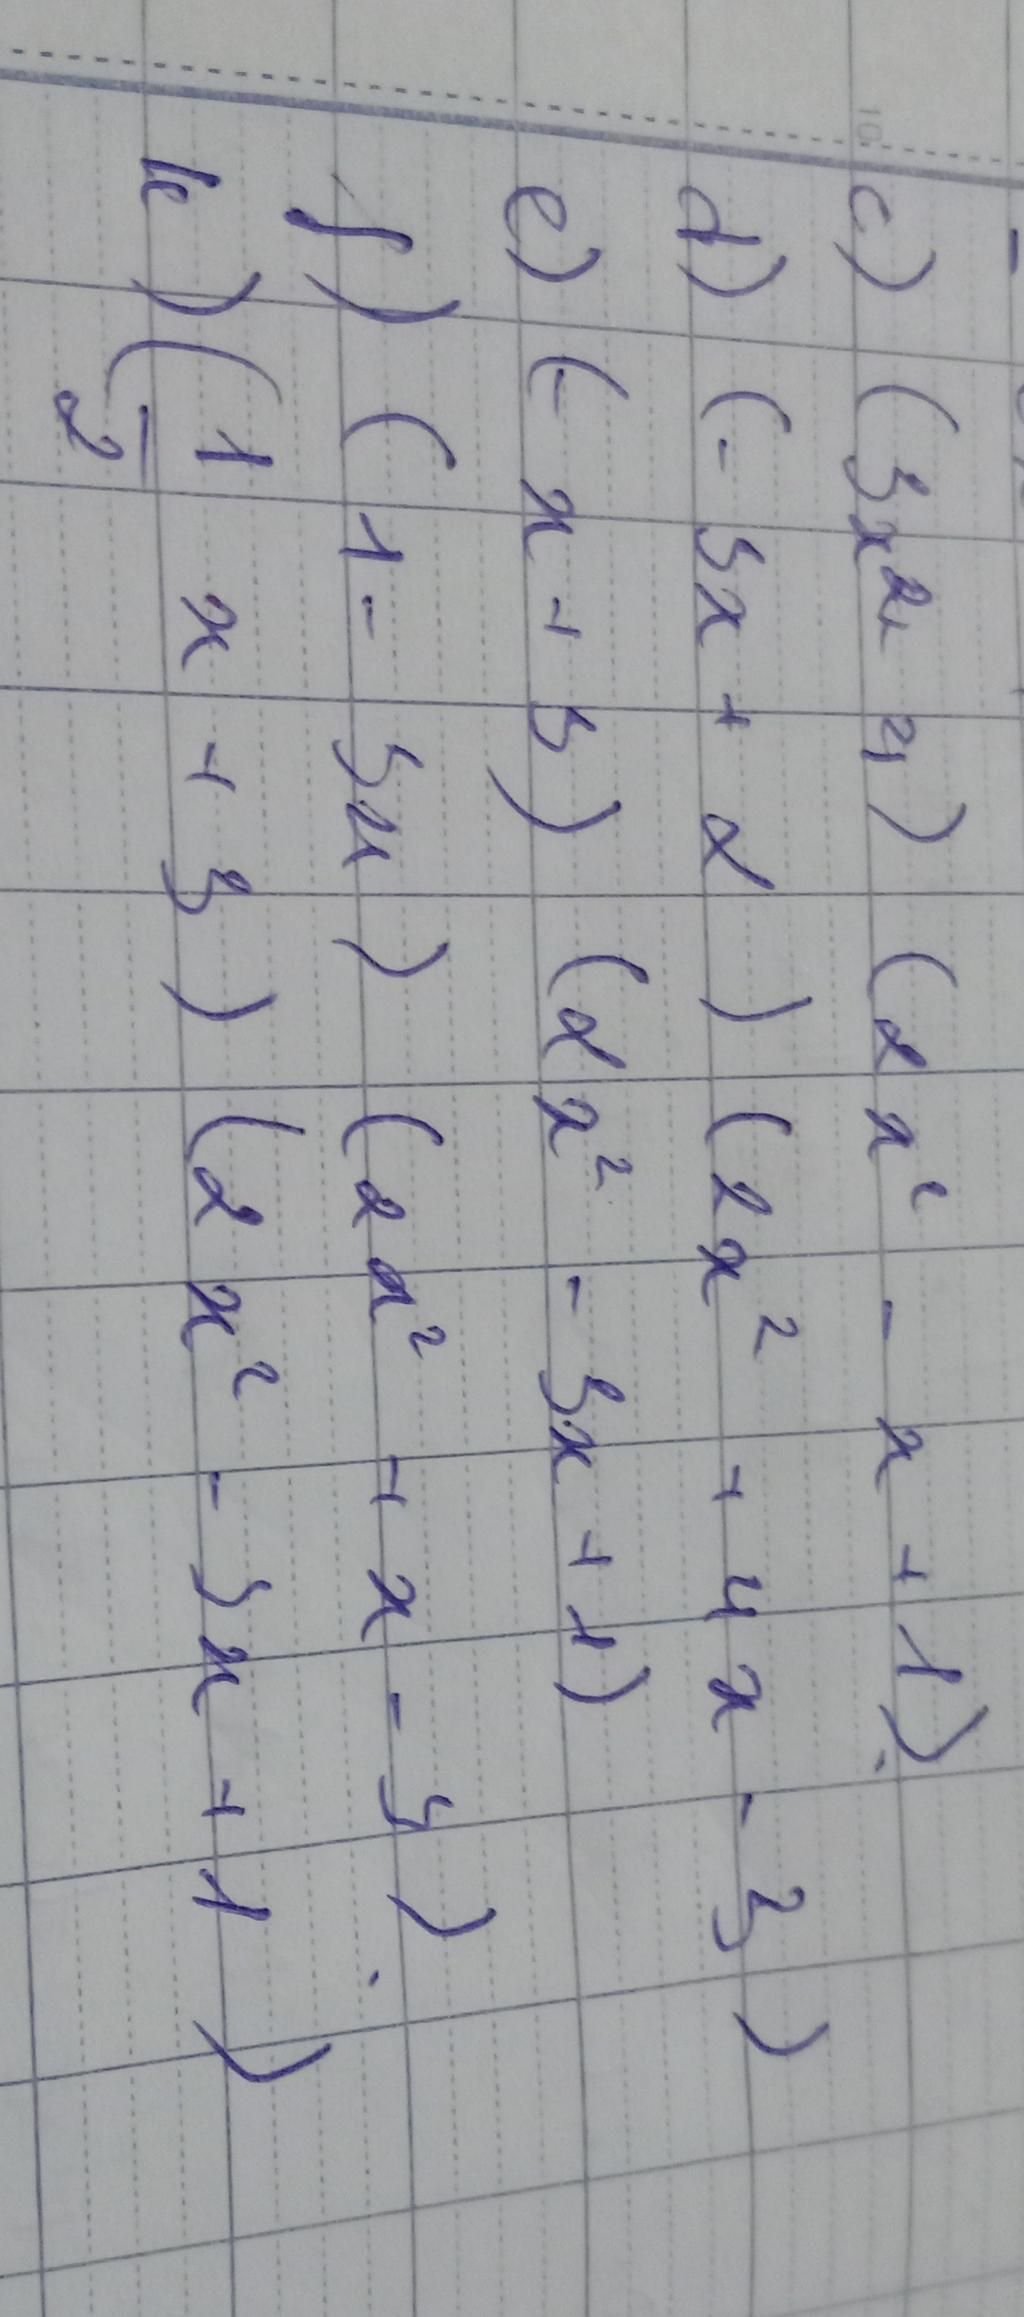 c) (3x² 4) (2x² - x + 1)
d) (- 3x + 2) (2x² + 4x - 3)
e) (- x + 3) (2x² - 3x + 1)
f) (1 - 3x) (2x² + x - 3)
h) (1/2 x + 3) (2x² - 3x + 1)